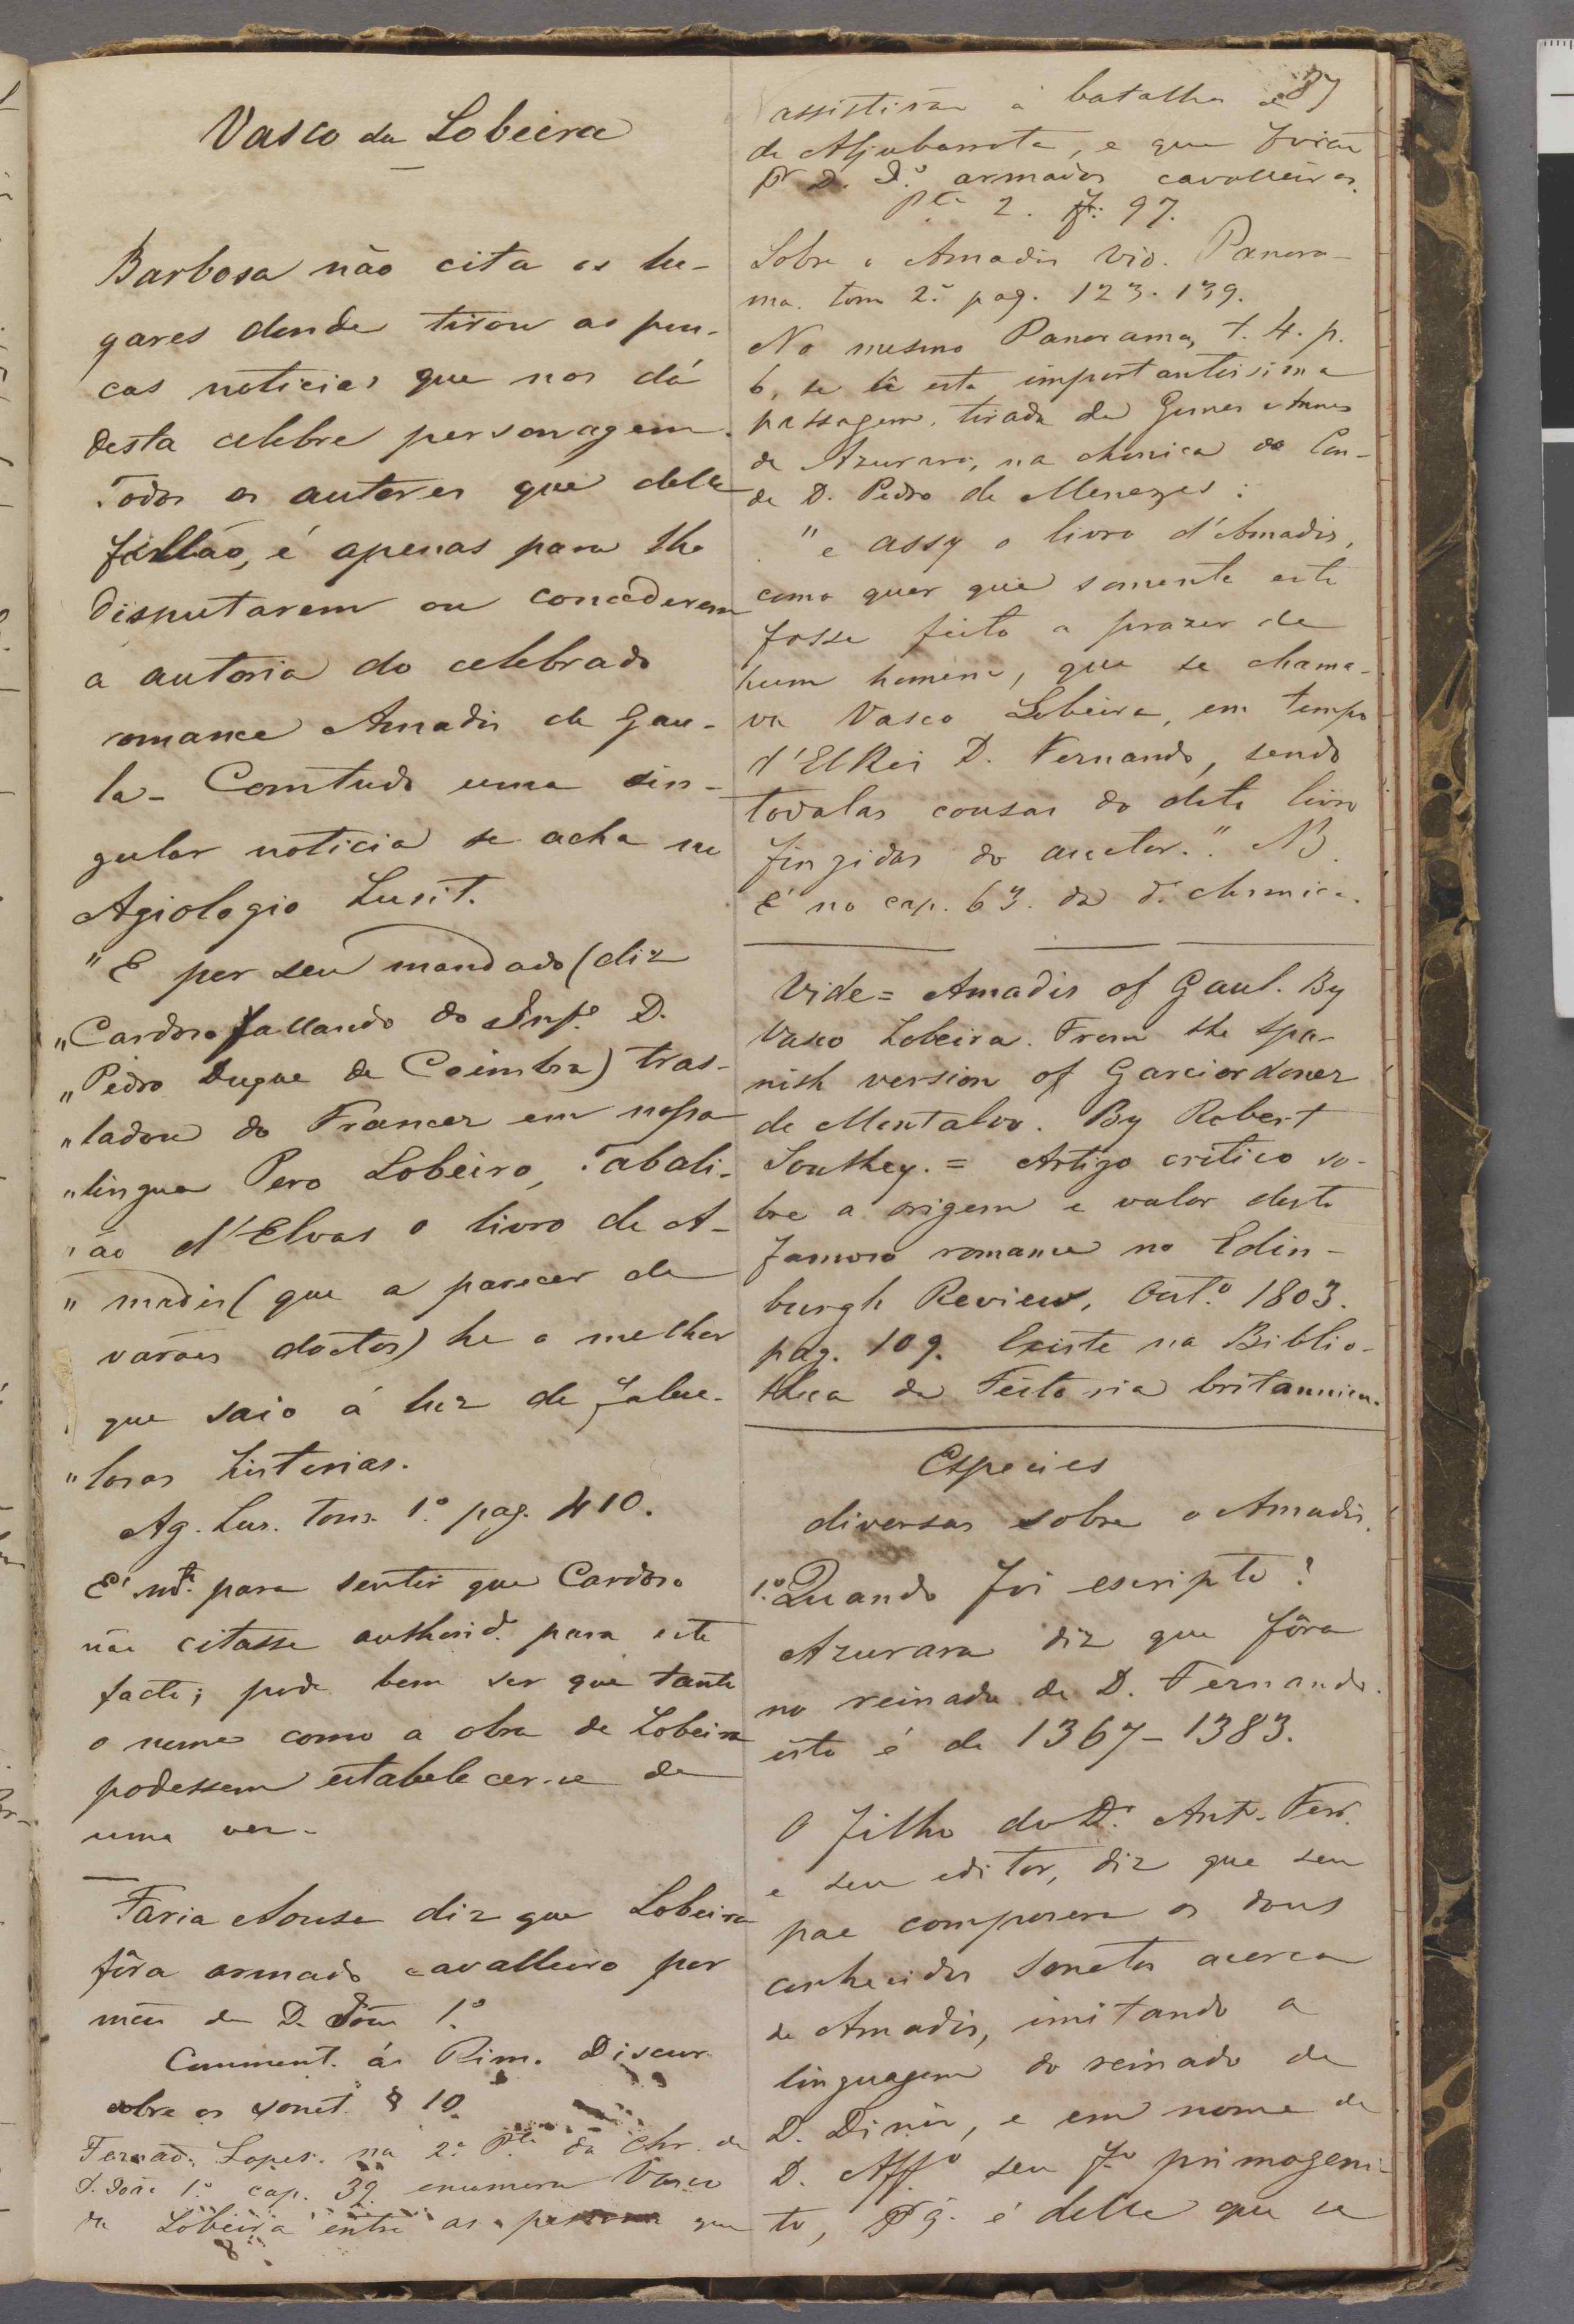 Vasco da Lobeira
Barbosa não cita os lu-
gares donde tirou as pou-
cas noticias que nos dá
desta celebre personagem.
Todos os autores que delle
fallão, é apenas para lhe
disputarem ou concederem
a autoria do celebrado
romance Amadis de Gau-
la - Comtudo uma sin-
gular noticia se acha no
Agiologio Lusit.
"E por seu mandado (diz
"Cardoso fallando do Infe. D.
"Pedro Duque de Coimbra) tras-
"ladou do Francez em nossa
"lingua Pero Lobeiro, Tabali-
"ão d'Elvas o livro de A-
"madis (que a parecer de
varões doctos) he o melhor
que saio á luz de fabu-
"losas historias.
Ag. Lus. tom. 1.º pag. 410.
É mt.º para sentir que Cardoso
não citasse authorid.e para este
facto; pode bem ser que tanto
o nome como a obra de Lobeira
podessem estabelecer-se de
uma vez.
Faria e Sousa diz que Lobeira
fôra armado cavalleiro por
mão de D. João 1.º
Comment. ás Rim. Discur.
sobre os sonet. § 10.
Fernão Lopes. na 2.ª P.te da Chr. de
D. João 1.º cap. 39 enumera Vasco
da Lobeira entre as pessoas que
87
assistirão á batalha
de Aljubarrota, e que forão
pr D. J.º armados cavalleiros.
P.te 2. f. 97.
Sobre o Amadis vid. Panora-
ma. tom 2.º pag. 123. 139.
No mesmo Panorama, t. 4. p.
6, se lê esta importantissima
passagem, tirada de Gomes Annes
de Azurara, na chronica do Con-
de D. Pedro de Menezes:
"e assy o livro d'Amadis,
como quer que somente este
fosse feito a prazer de
hum homem, que se chama-
va Vasco Lobeira, em tempo
d'ElRei D. Fernando, sendo
todalas cousas do dito livro
fingidas do auctor." NB.
É no cap. 63. da d. chronica.
Vide = Amadis of Gaul. By
Vasco Lobeira. From the Spa-
nish version of Garciordonez
de Montalvo. By Robert
Southey. = Artigo critico so-
bre a origem e valor deste
famoso romance no Edin-
burgh Review, Out.º 1803.
pag. 109. Existe na Biblio-
theca da Feitoria britannica.
Especies
diversas sobre o Amadis.
1.º Quando foi escripto?
Azurara diz que fôra
no reinado de D. Fernando.
isto é de 1367-1383.
O filho do Dr. Ant.º Ferr.
e seu editor, diz que seu
pae composera os dous
conhecidos sonetos acerca
de Amadis, imitando a
linguagem do reinado de
D. Diniz, e em nome de
D. Aff.º seu f.º primogeni-
to, pr q. é delle que se